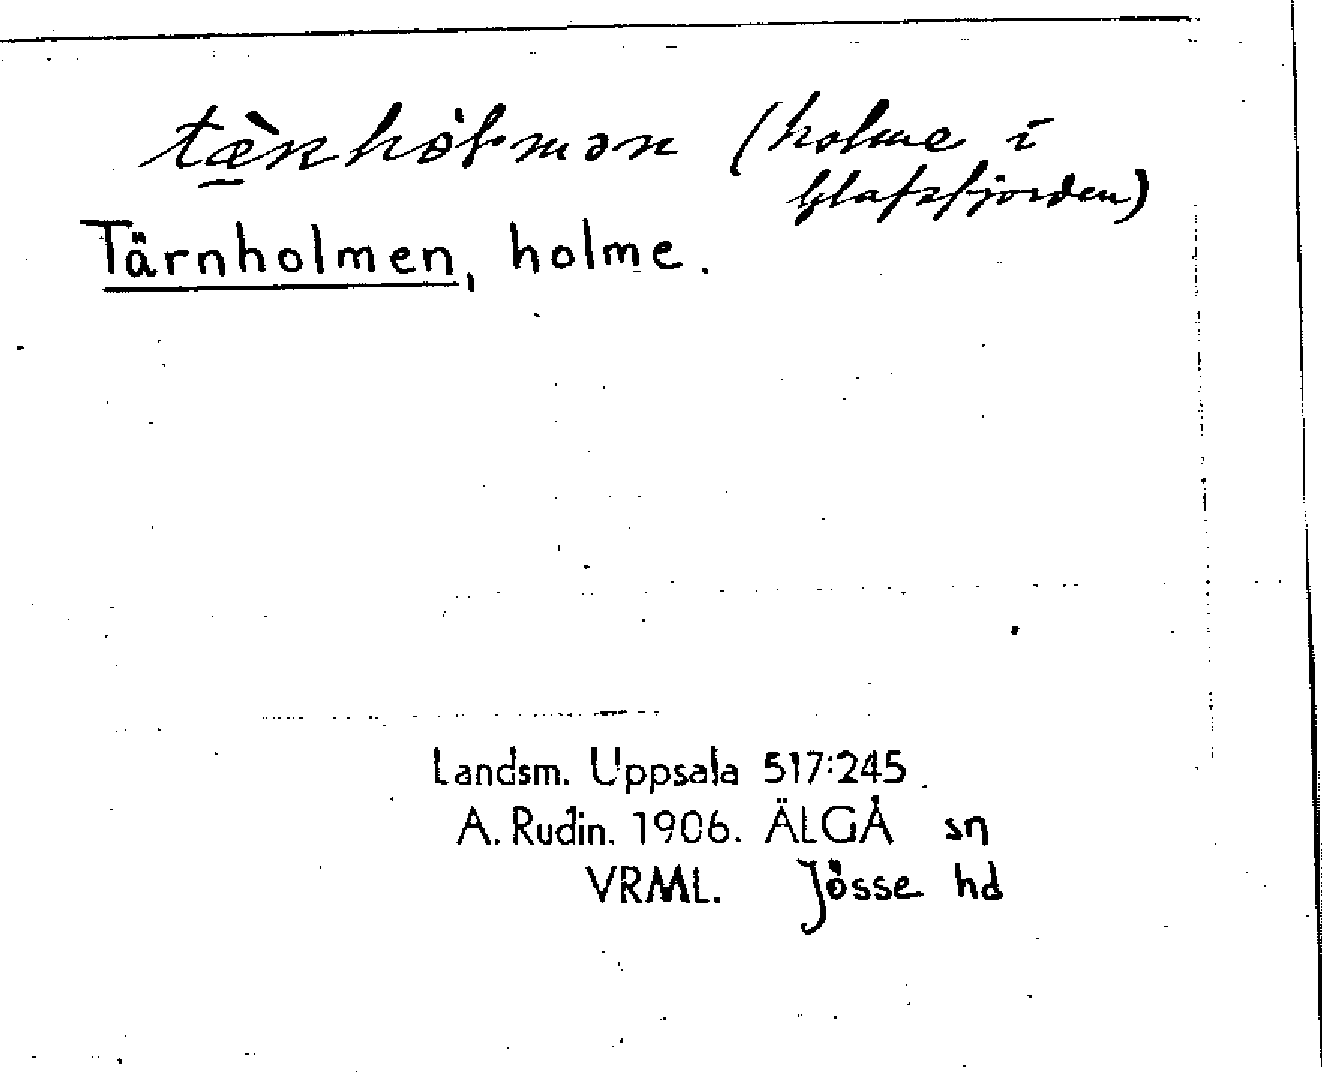 (holme i
Glafsfjorden)
Tärnholmen, holme.
Landsm. Uppsala 517:245
A. Rudin. 1906. ÄLGÅ sn
VRML. Jösse hd